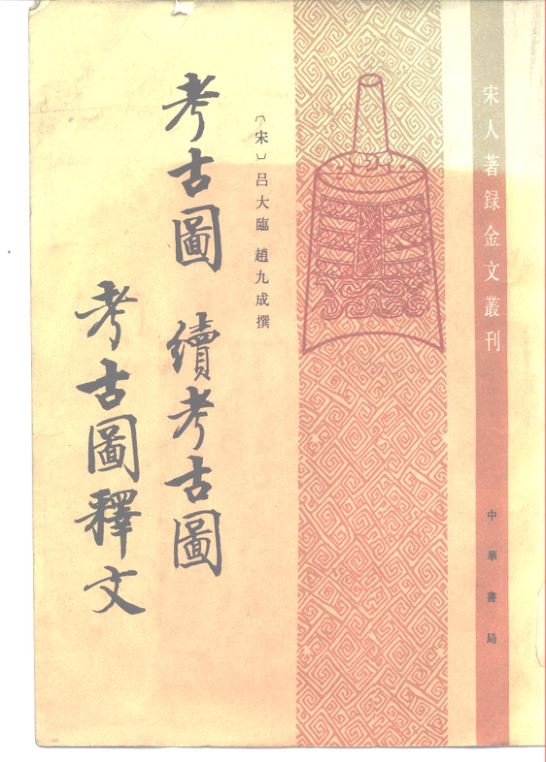 宋人著録金文叢刊
中華書局
〔宋〕呂大臨 趙九成撰
考古圖 續考古圖
考古圖釋文